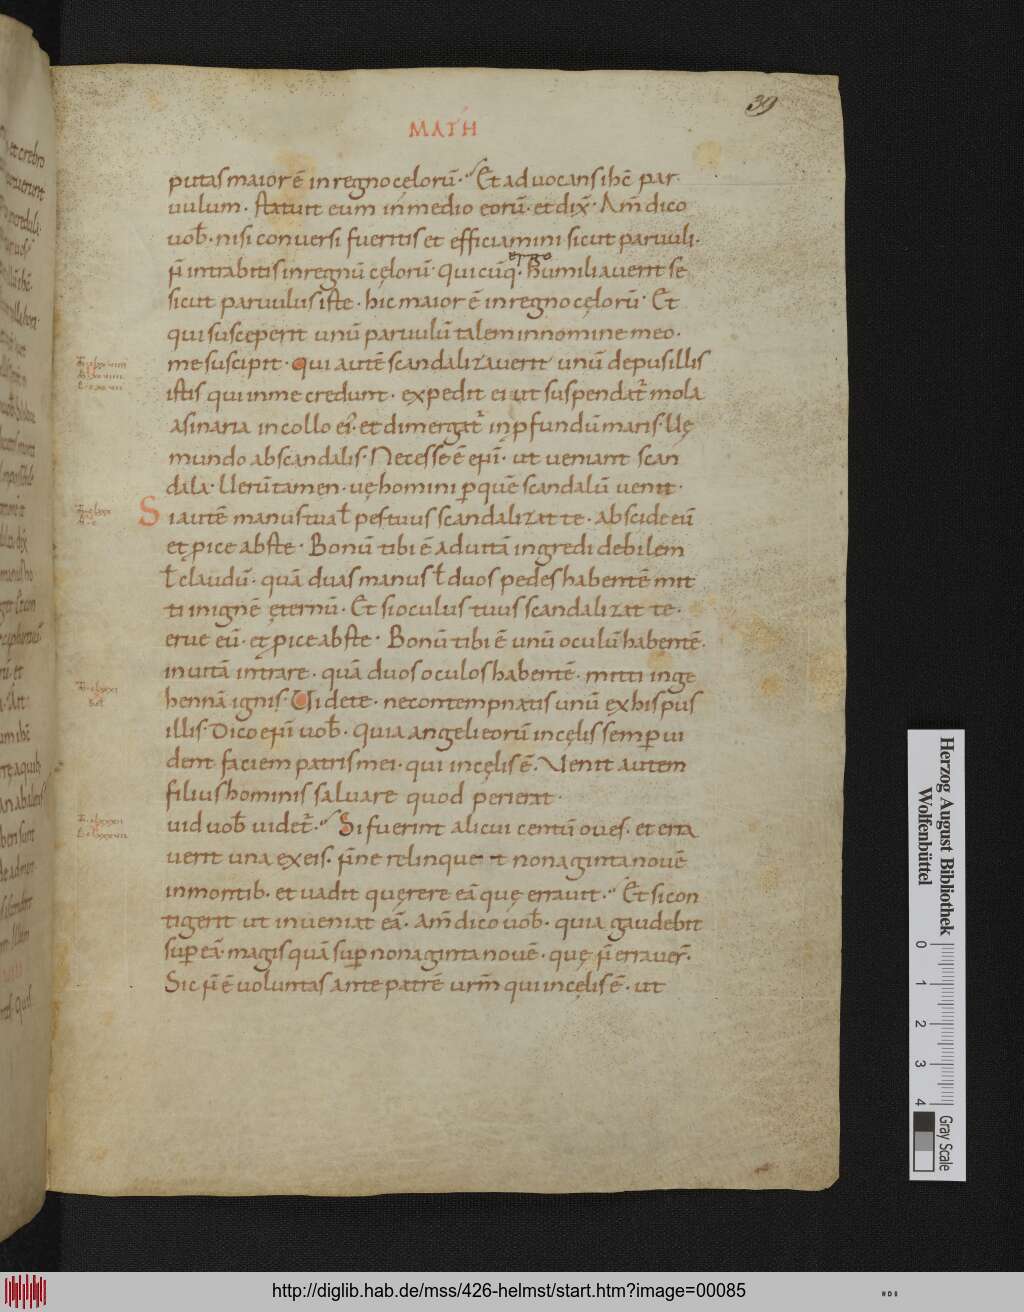 39
MATH
putas maior ē in regno cęlorū. Et aduocans ihc̄ par
uulum. statuit eum in medio eorū. et dix̄. Am̄ dico
uob̄. nisi conuersi fueritis et efficiamini sicut paruuli.
ergo
ñ intrabitis in regnū cęlorū. quicūq. humiliauerit se
sicut paruulus iste. hic maior ē in regno cęlorū. Et
qui susceperit unū paruulū talem in nomine meo.
me suscipit. Qui autē scandalizauerit unū de pusillis
istis qui in me credunt. expedit ei ut suspendat̄ mola
asinaria in collo ei. et dimergat̄ in ꝓfundū maris. Uę
mundo ab scandalis. Necesse ē eni. ut ueniant scan
dala. Uerūtamen. uę homini ꝑ quē scandalū uenit.
Si autē manus tua ł pes tuus scandalizat te. abscide eū
et ꝓice abs te. Bonū tibi ē ad uitā ingredi debilem
ł claudū. quā duas manus ł duos pedes habentē mit
ti in ignē ęternū. Et si oculus tuus scandalizat te.
erue eū. et ꝓice abs te. Bonū tibi ē unū oculū habentē.
in uitā intrare. quā duos oculos habentē. mitti in ge
hennā ignis. Uidete. ne contempnatis unū ex his pus
illis. Dico eni uob̄. quia angeli eorū in cęlis semꝑ ui
dent faciem patris mei. qui in cęlis ē. Venit autem
filius hominis saluare quod perierat.
uid uob̄ uidet̄. Si fuerint alicui centū oues. et erra
uerit una ex eis. ñne relinquet nonaginta nouē
in montib. et uadit quęrere eā quę errauit. Et si con
tigerit ut inueniat eā. Am̄ dico uob̄. quia gaudebit
suꝑ eā magis quā suꝑ nonaginta nouē. quę ñ errauer̄.
Sic ñ ē uoluntas ante patrē urm̄ qui in cęlis ē. ut
Herzog August Bibliothek
Wolfenbüttel
0 1 2 3 4
Gray Scale
http://diglib.hab.de/mss/426-helmst/start.htm?image=00085